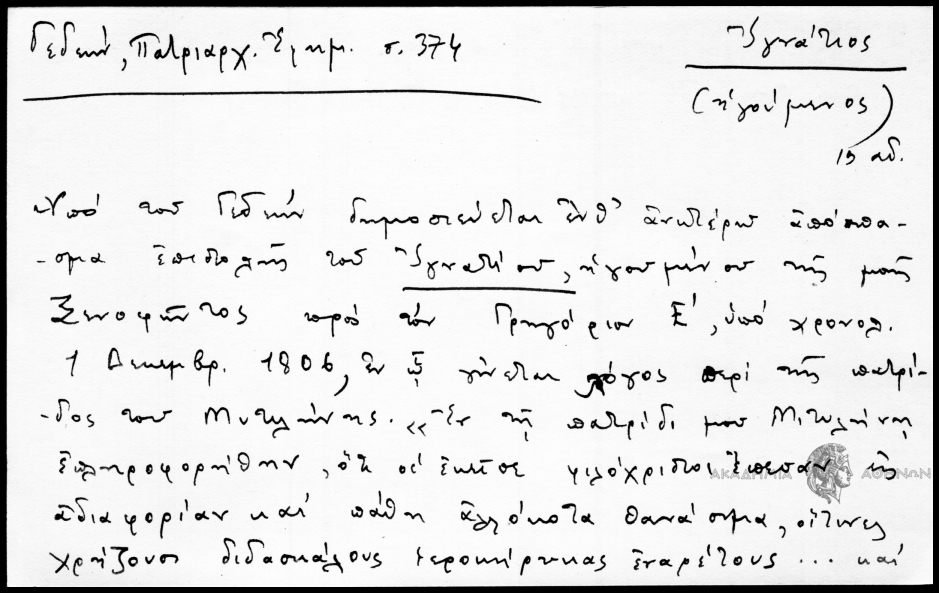 Γεδεών, Πατριαρχ. Ἐφημ. σ. 374
Ἰγνάτιος
(ἡγούμενος)
19 αἰ.
Ὑπό τοῦ Γεδεών δημοσιεύεται ἔνθ' ἀνωτέρω ἀπόσπα-
-σμα ἐπιστολῆς τοῦ Ἰγνατίου, ἡγουμένου τῆς μονῆς
Ξενοφῶντος πρός τόν Γρηγόριον Ε', ὑπό χρονολ.
1 Δεκεμβρ. 1806, ἐν ᾧ γίνεται λόγος περί τῆς πατρί-
-δος του Μυτιλήνης. «Ἐν τῇ πατρίδι μου Μιτυλήνῃ
ἐπληροφορήθην, ὅτι οἱ ἐκεῖσε φιλόχριστοι ἔπεσαν εἰς
ἀδιαφορίαν καί πάθη ἀλλόκοτα θανάσιμα, οἵτινες
χρῄζουσι διδασκάλους ἱεροκήρυκας ἐναρέτους ... καί
ΑΚΑΔΗΜΙΑ ΑΘΗΝΩΝ